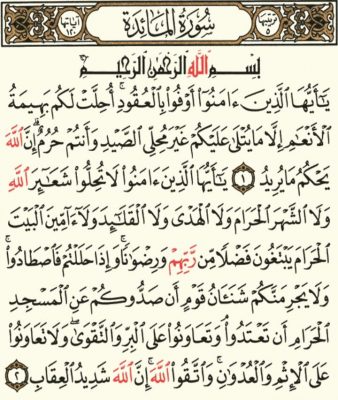 ترتيبها ٥ سُورَةُ المَائِدَةِ آياتها ١٢٠
بِسْمِ ٱللَّهِ ٱلرَّحْمَٰنِ ٱلرَّحِيمِ
يَٰٓأَيُّهَا ٱلَّذِينَ ءَامَنُوٓا۟ أَوْفُوا۟ بِٱلْعُقُودِ ۚ أُحِلَّتْ لَكُم بَهِيمَةُ
ٱلْأَنْعَٰمِ إِلَّا مَا يُتْلَىٰ عَلَيْكُمْ غَيْرَ مُحِلِّى ٱلصَّيْدِ وَأَنتُمْ حُرُمٌ ۗ إِنَّ ٱللَّهَ
يَحْكُمُ مَا يُرِيدُ ١ يَٰٓأَيُّهَا ٱلَّذِينَ ءَامَنُوا۟ لَا تُحِلُّوا۟ شَعَٰٓئِرَ ٱللَّهِ
وَلَا ٱلشَّهْرَ ٱلْحَرَامَ وَلَا ٱلْهَدْىَ وَلَا ٱلْقَلَٰٓئِدَ وَلَآ ءَآمِّينَ ٱلْبَيْتَ
ٱلْحَرَامَ يَبْتَغُونَ فَضْلًا مِّن رَّبِّهِمْ وَرِضْوَٰنًا ۚ وَإِذَا حَلَلْتُمْ فَٱصْطَادُوا۟ ۚ
وَلَا يَجْرِمَنَّكُمْ شَنَـَٔانُ قَوْمٍ أَن صَدُّوكُمْ عَنِ ٱلْمَسْجِدِ
ٱلْحَرَامِ أَن تَعْتَدُوا۟ ۘ وَتَعَاوَنُوا۟ عَلَى ٱلْبِرِّ وَٱلتَّقْوَىٰ ۖ وَلَا تَعَاوَنُوا۟
عَلَى ٱلْإِثْمِ وَٱلْعُدْوَٰنِ ۚ وَٱتَّقُوا۟ ٱللَّهَ ۖ إِنَّ ٱللَّهَ شَدِيدُ ٱلْعِقَابِ ٢